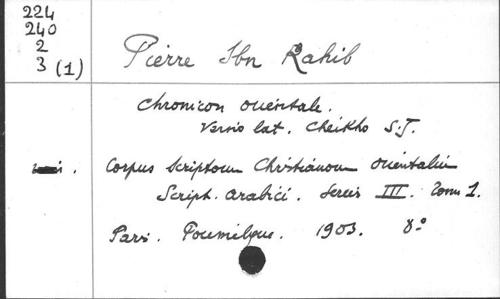 224
240
2
3 (1)
Pierre Ibn Rahib
Chronicon orientale.
Versio lat. Cheikho S.J.
Corpus Scriptorum Christianorum orientalium
Script. arabici. Series III. Tomu 1.
Pars. 1903. 8°